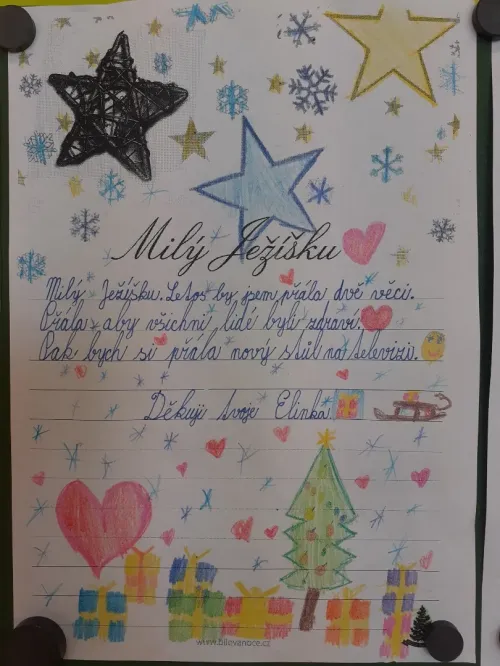 Milý Ježíšku
Milý Ježíšku. Letos by jsem přála dvě věci.
Přála aby všichni lidé byli zdraví.
Pak bych si přála nový stůl na televizi.
Děkuji tvoje Elinka
www.bilevanoce.cz